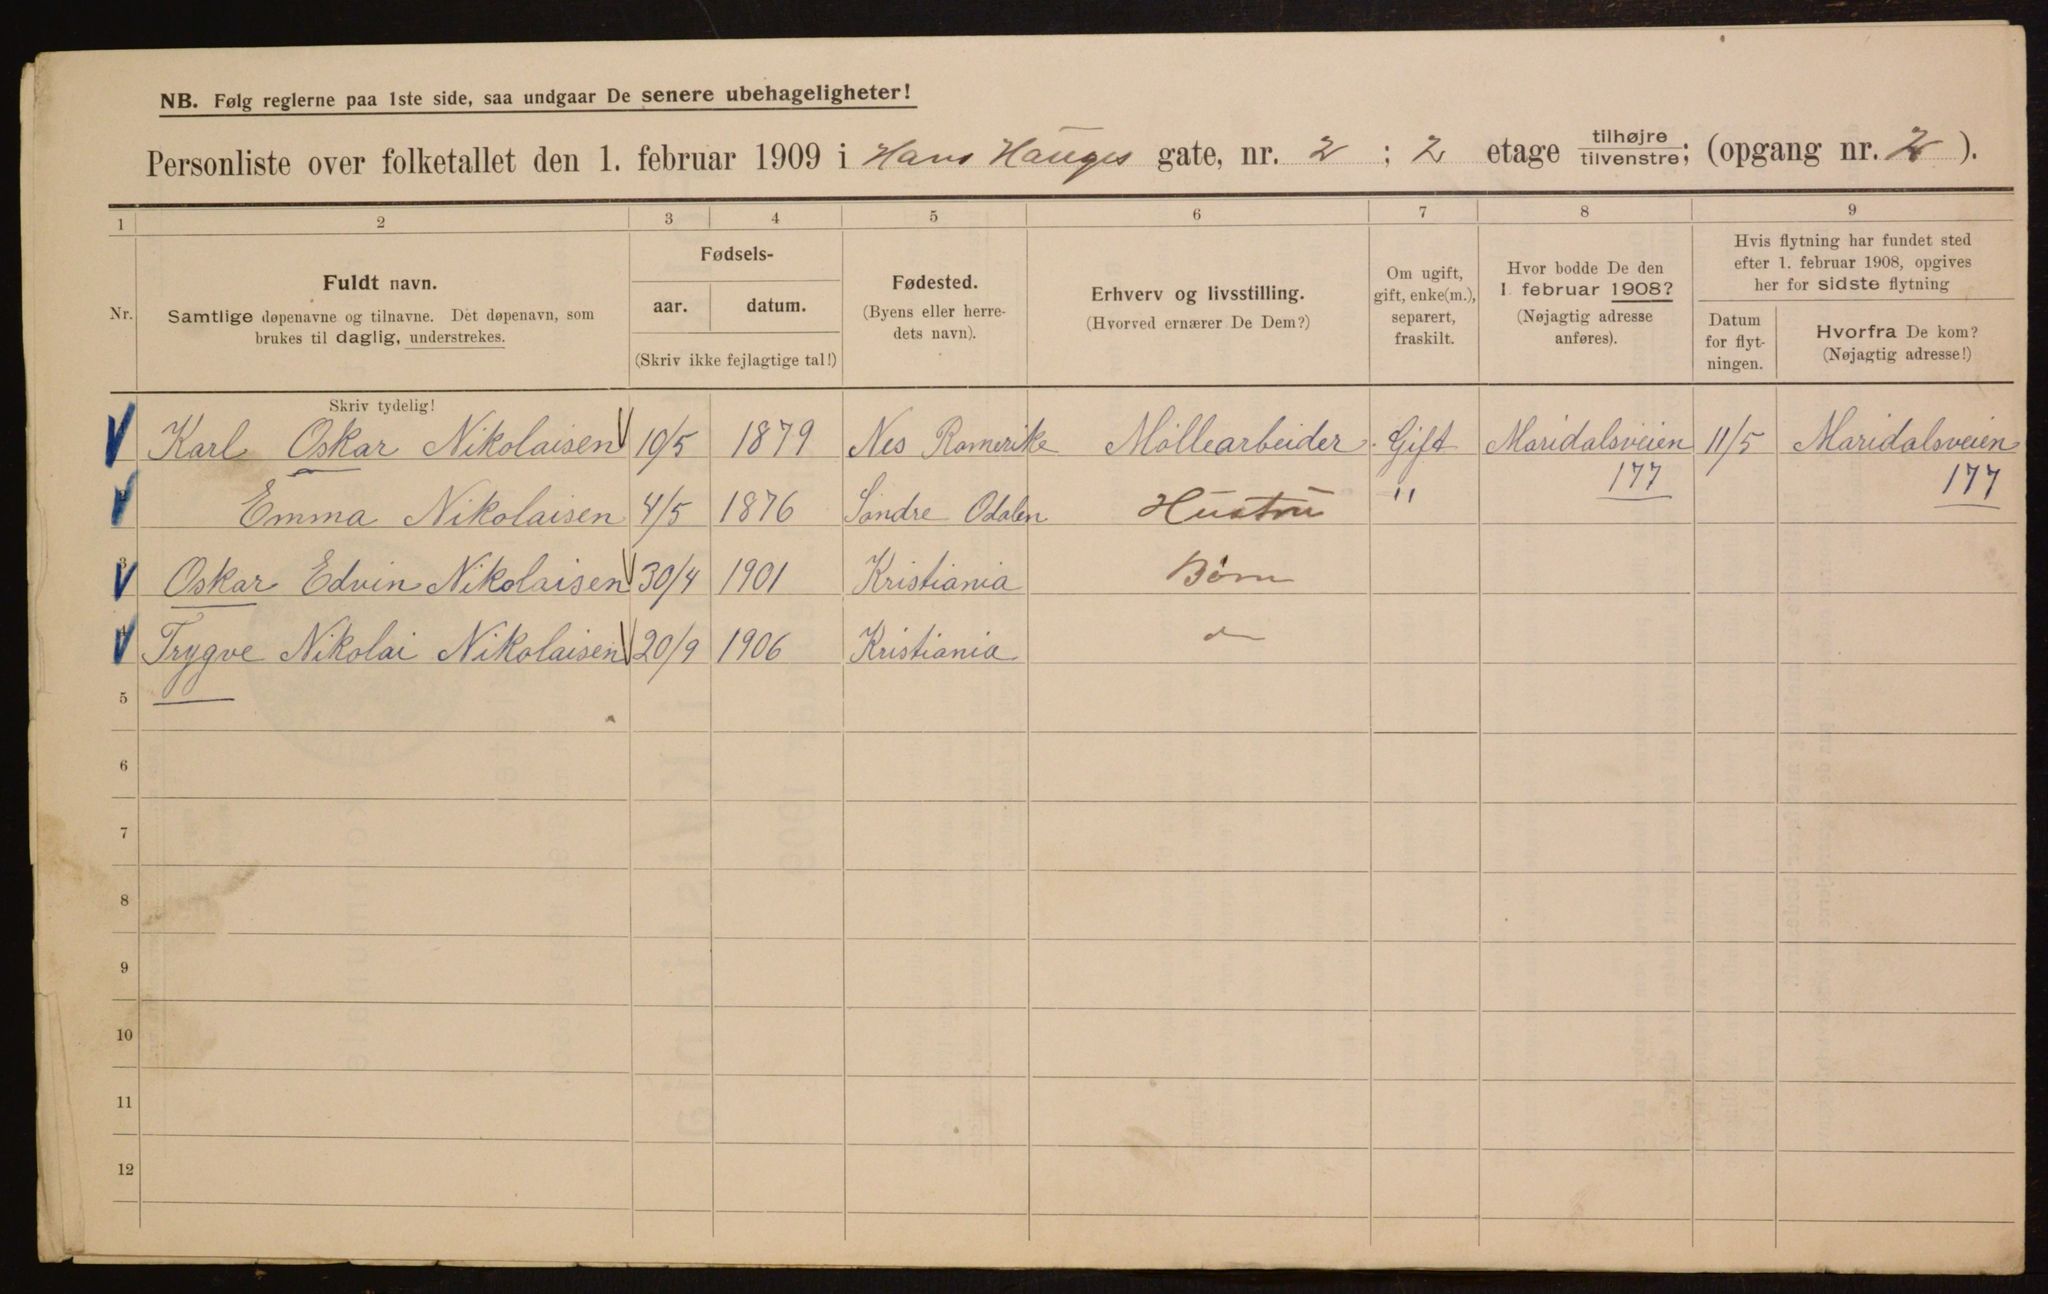 NB. Følg reglerne paa 1ste side, saa undgaar De senere ubehageligheter!
Personliste over folketallet den 1. februar 1909 i Hans Hauges gate, nr. 2 ; 2 etage tilhøjre/tilvenstre; (opgang nr. 2 ).
1 2 3 4 5 6 7 8 9
Nr.
Fuldt navn.
Samtlige døpenavne og tilnavne. Det døpenavn, som
brukes til daglig, understrekes.
Skriv tydelig!
Fødsels-
aar. datum.
(Skriv ikke fejlagtige tal!)
Fødested.
(Byens eller herre-
dets navn).
Erhverv og livsstilling.
(Hvorved ernærer De Dem?)
Om ugift,
gift, enke(m.),
separert,
fraskilt.
Hvor bodde De den
1 februar 1908?
(Nøjagtig adresse
anføres).
Hvis flytning har fundet sted
efter 1. februar 1908, opgives
her for sidste flytning
Datum
for flyt-
ningen.
Hvorfra De kom?
(Nøjagtig adresse!)
Karl Oskar Nikolaisen 10/5 1879 Nes Romerike Möllearbeider Gift Maridalsveien 11/5 Maridalsveien
177 177
Emma Nikolaisen 4/5 1876 Söndre Odalen Hustru "
Oskar Edvin Nikolaisen 30/4 1901 Kristiania Börn
Trygve Nikolai Nikolaisen 20/9 1906 Kristiania
5
6
7
8
9
10
11
12